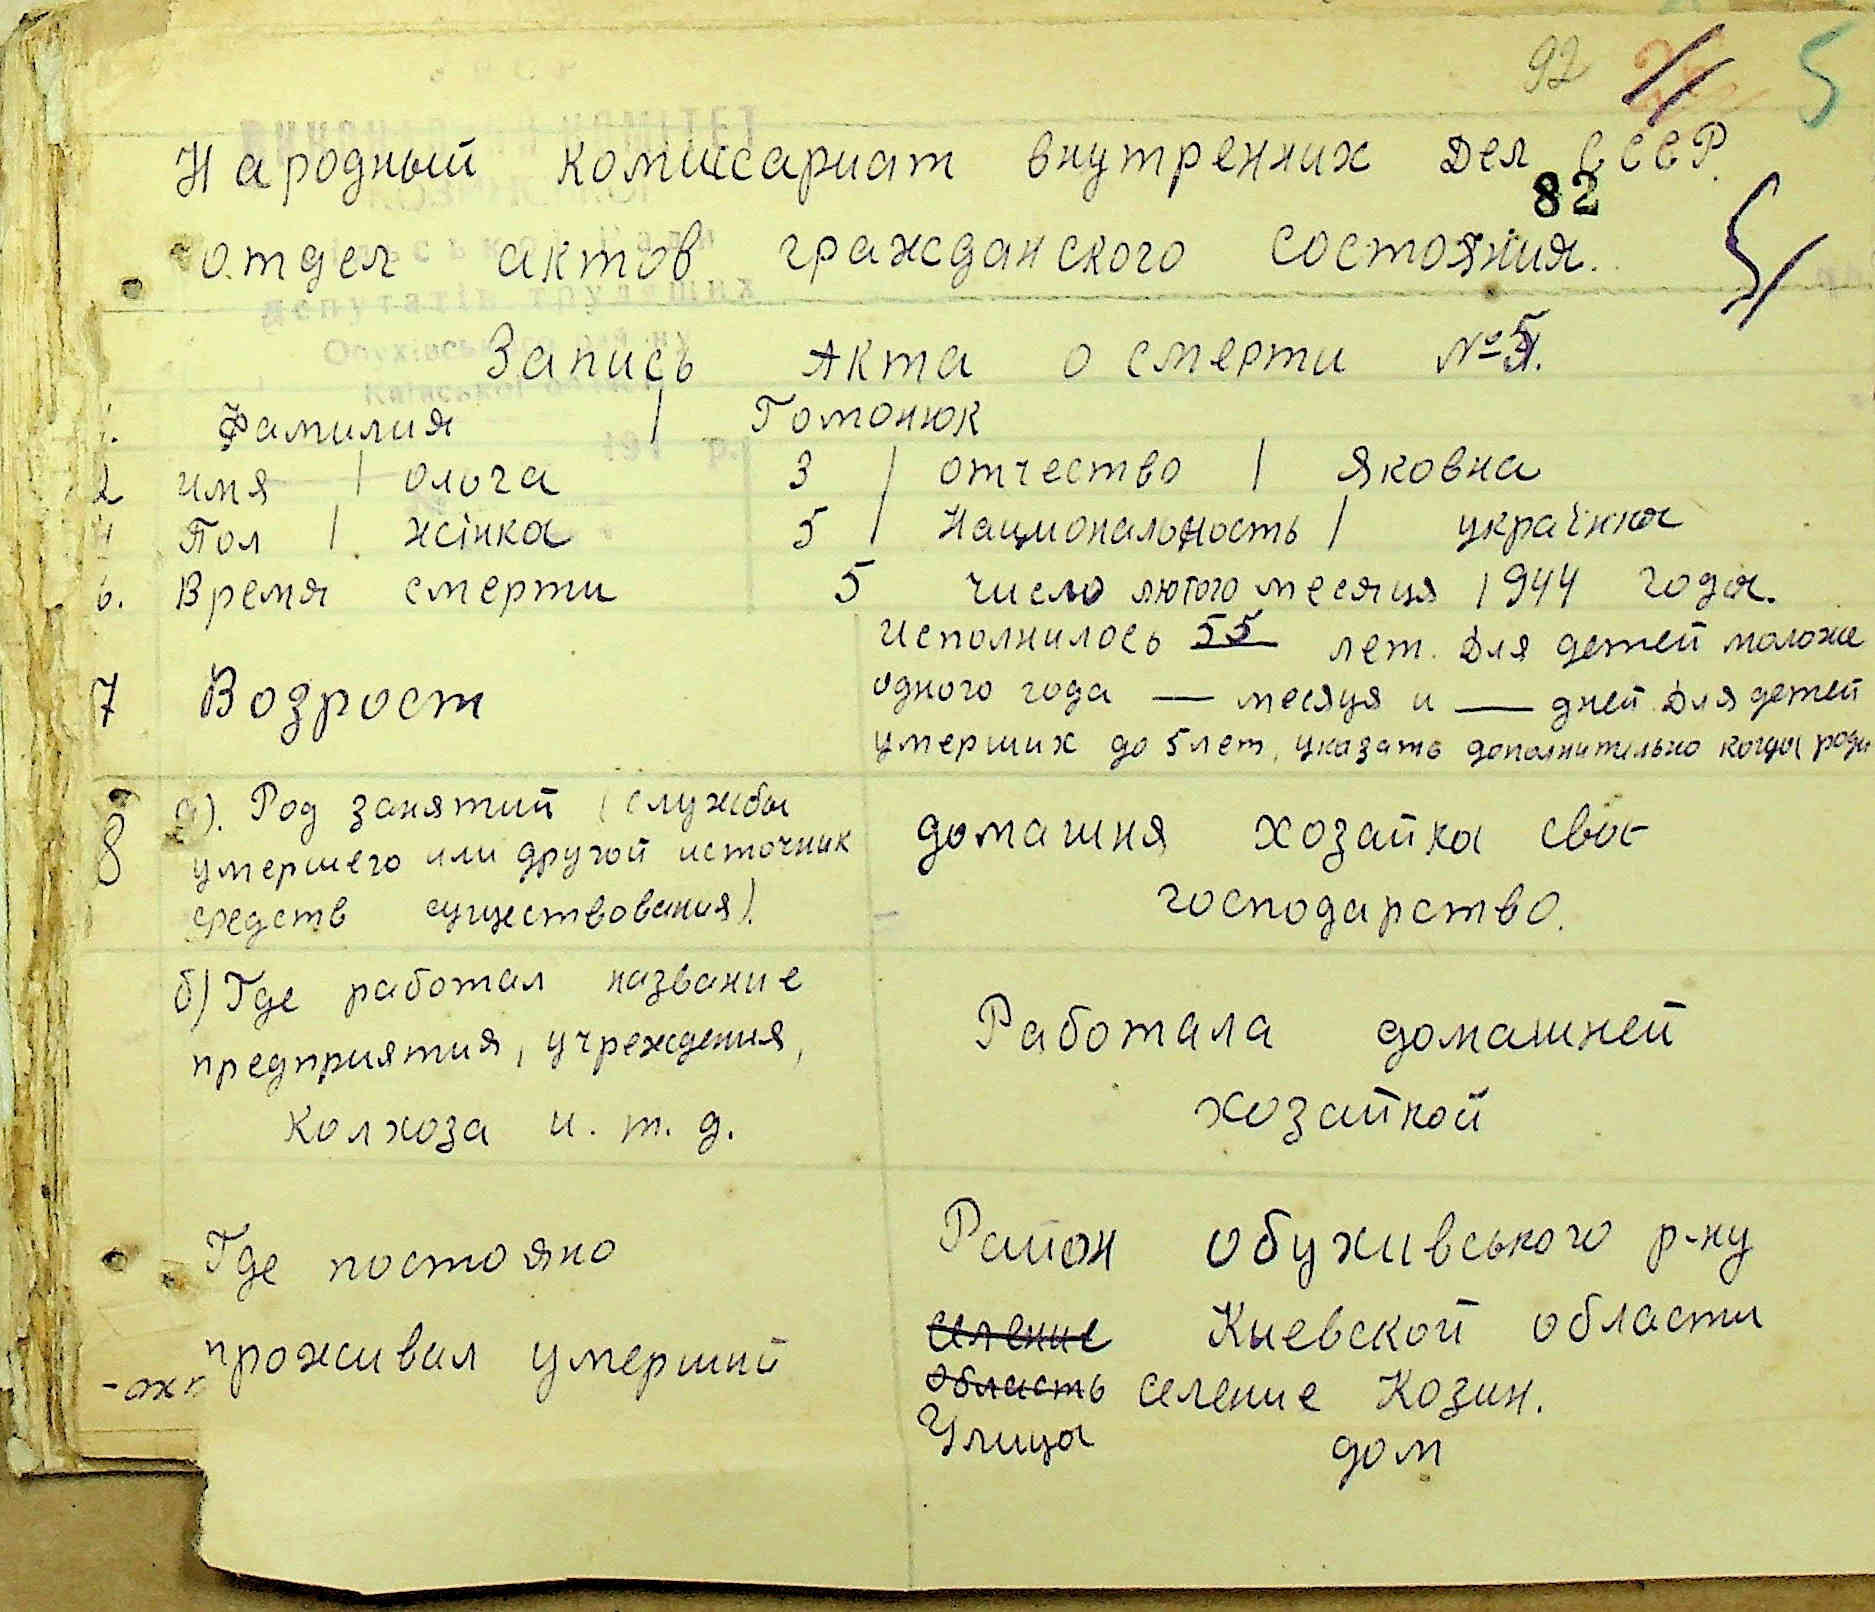 92 5
Народный комиссариат внутренних Дел СССР.
82
отдел актов гражданского состояния.
5
Запись Акта о смерти № 5.
1. Фамилия | Гомонюк
2 имя | ольга 3 | отчество | Яковна
4 Пол | жінка 5 | Национальность | українка
6. Время смерти 5 число лютого месяця 1944 года.
7 Возрост
исполнилось 55 лет. Для детей моложе
одного года — месяця и — дней. Для детей
умерших до 5 лет, указать дополнительно когда роди
8 а). Род занятий (службы
умершего или другой источник
средств существования).
домашня хозайка своє
господарство.
б) Где работал название
предприятия, учреждения,
колхоза и. т. д.
Работала домашней
хозайкой
Где постояно
проживал умерший
Район обухивського р-ну
селение Киевской области
область селение Козин.
Улица дом